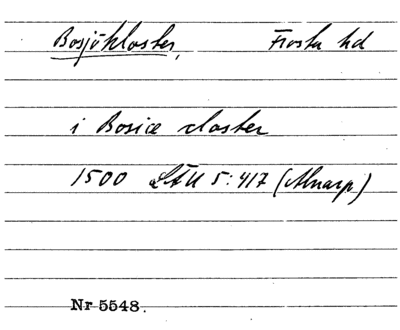 Bosjökloster, Frosta hd
i Bosiæ closter
1500 LÄU 5:417 (Alnarp)
Nr 5548.